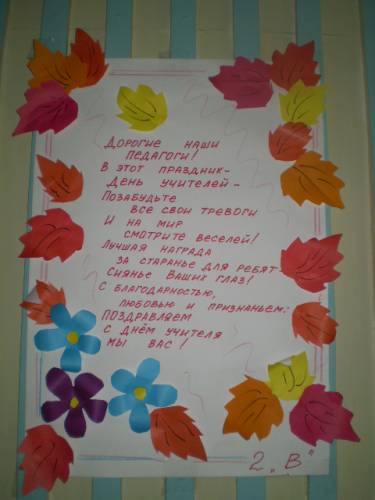 Дорогие наши
педагоги!
В этот праздник-
День учителей-
Позабудьте
все свои тревоги
И на мир
смотрите веселей!
Лучшая награда
за старанье для ребят-
Сиянье Ваших глаз!
С благодарностью,
любовью и признаньем:
Поздравляем
с днём учителя
мы вас!
2 „В"